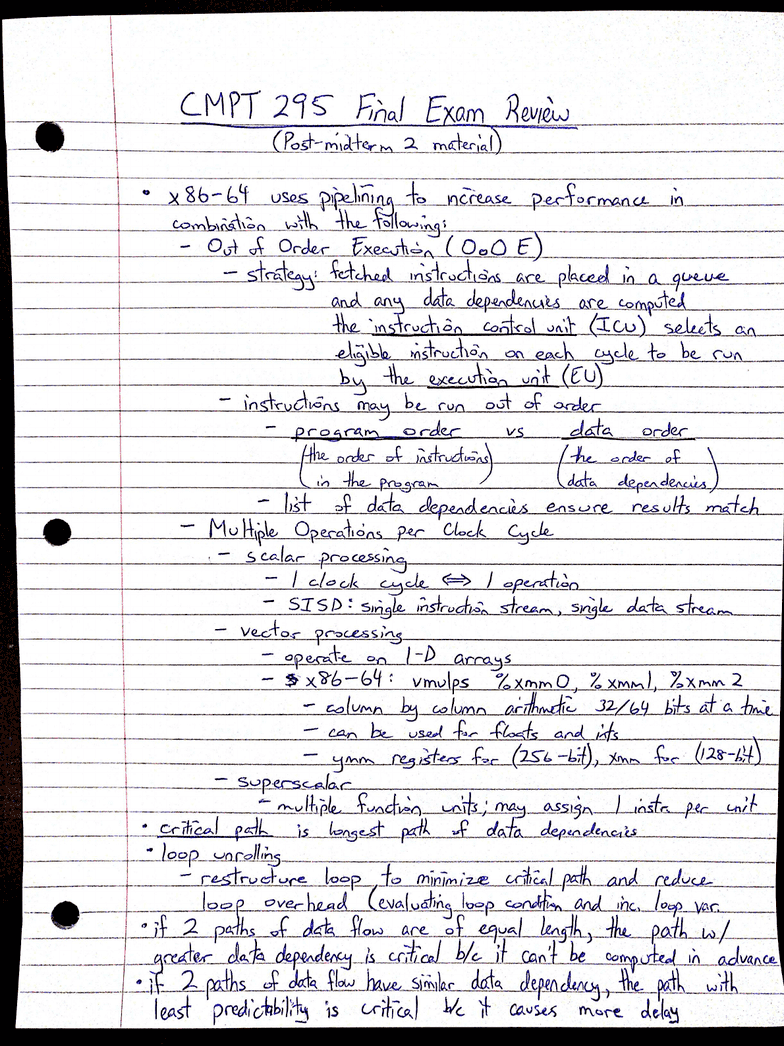 CMPT 295 Final Exam Review
(Post-midterm 2 material)
• x86-64 uses pipelining to increase performance in
combination with the following:
- Out of Order Execution (OoO E)
- strategy: fetched instructions are placed in a queue
and any data dependencies are computed
the instruction control unit (ICU) selects an
eligible instruction on each cycle to be run
by the execution unit (EU)
- instructions may be run out of order
- program order vs data order
(the order of instructions in the program) (the order of data dependencies)
- list of data dependencies ensure results match
- Multiple Operations per Clock Cycle
- scalar processing
- 1 clock cycle ⇔ 1 operation
- SISD: single instruction stream, single data stream
- vector processing
- operate on 1-D arrays
- x86-64: vmulps %xmm0, %xmm1, %xmm2
- column by column arithmetic 32/64 bits at a time
- can be used for floats and ints
- ymm registers for (256-bit), xmm for (128-bit)
- superscalar
- multiple function units; may assign 1 instr per unit
• critical path is longest path of data dependencies
• loop unrolling
- restructure loop to minimize critical path and reduce
loop overhead (evaluating loop condtion and inc. loop var.
• if 2 paths of data flow are of equal length, the path w/
greater data dependency is critical b/c it can't be computed in advance
• if 2 paths of data flow have similar data dependency, the path with
least predictability is critical b/c it causes more delay